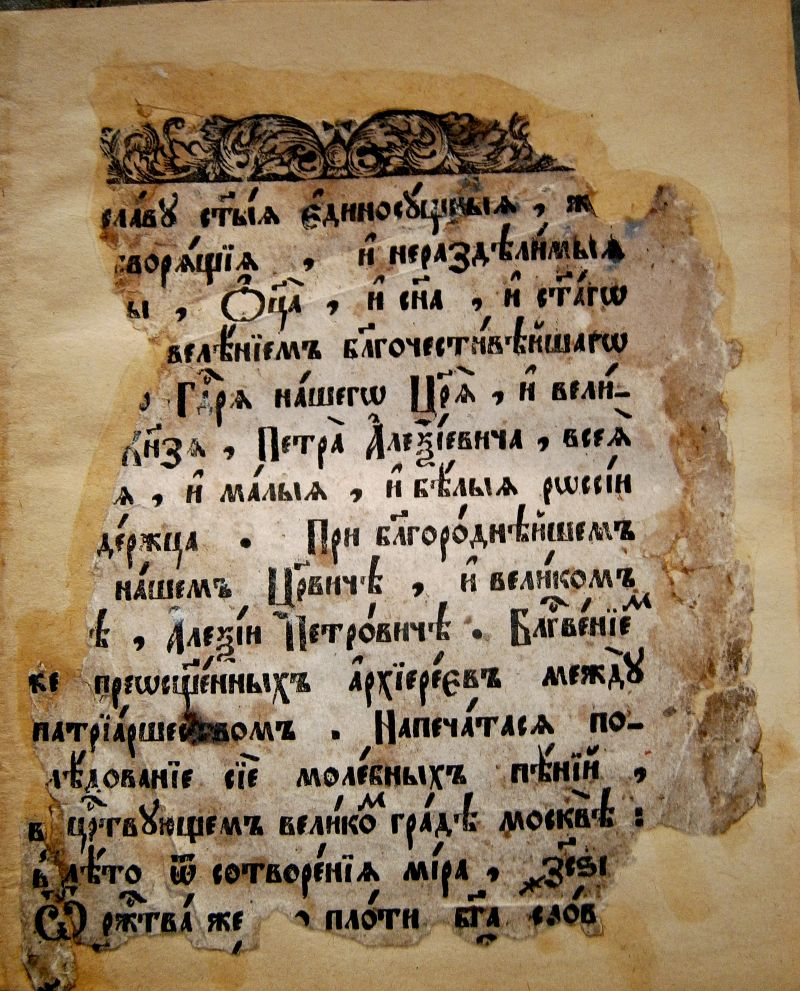 славу ст҃ы́ѧ є҆диносꙋ́щныѧ , ж
творѧ́щїѧ , и҆ нераздѣли́мыѧ
ы , Ѻ҆ц҃а̀ , и҆ сн҃а , и҆ ст҃а́гѡ
велѣ́нїемъ бл҃гочести́вѣйшагѡ
Гдⷭ҇рѧ на́шегѡ Цр҃ѧ̀ , и҆ вели́-
кнѧ́зѧ , Петра̀ А҆леѯі́евича , всеѧ̀
ѧ , и҆ ма́лыѧ , и҆ бѣ́лыѧ рѡссі́и
де́ржца . При бл҃горо́днѣйшемъ
на́шемъ Црⷭ҇вичѣ , и҆ вели́комъ
ѣ , А҆леѯі́и Петро́вичѣ . Блг҃ве́нїемⷨ
же преѡсщ҃е́нныхъ а҆рхїере́євъ междꙋ̀
патрїа́ршествомъ . Напеча́тасѧ по-
лѣ́дованїе сїѐ моле́бныхъ пѣ́нїй ,
в црⷭ҇твꙋющемъ вели́комⷨ гра́дѣ москвѣ̀ :
в лѣ́то ѿ сотворе́нїѧ мі́ра , ҂зсѕі
Ѿ ржⷭ҇тва́ же , пло́ти бг҃а сло́в